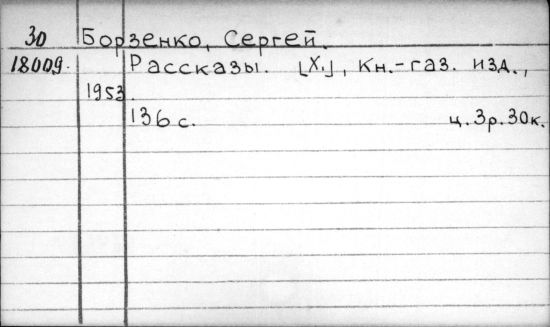 30 Борзенко, Сергей.
18009. Рассказы. [Х.], Кн.-газ. изд.,
1953.
136 с. ц. 3р. 30к.